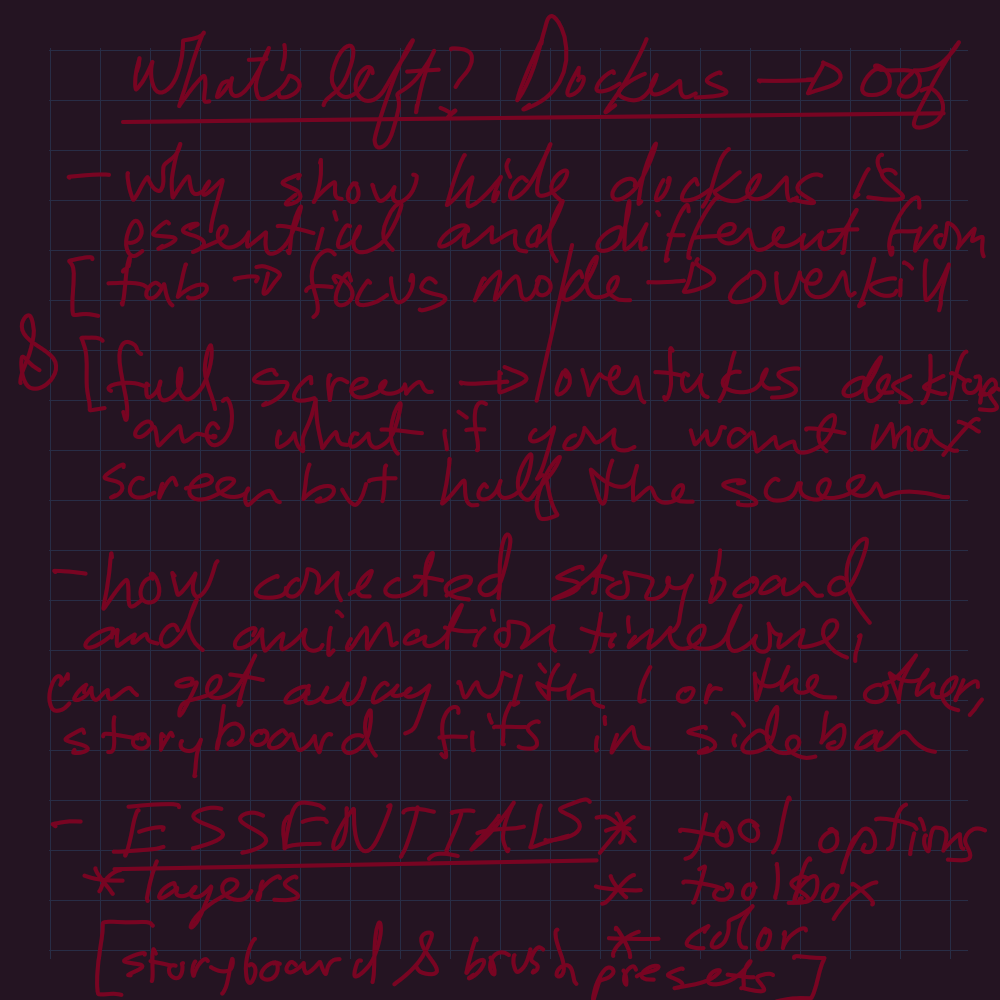 What's left? Dockers → oof
- why show hide dockers is
essential and different from
[tab → focus mode → overkill
& [full screen → overtakes desktop
and what if you want max
screen but half the screen
- how conected storyboard
and animation timeline;
can get away with 1 or the other,
storyboard fits in sidebar
- ESSENTIALS * tool options
* layers * toolbox
* color
[storyboard & brush presets]